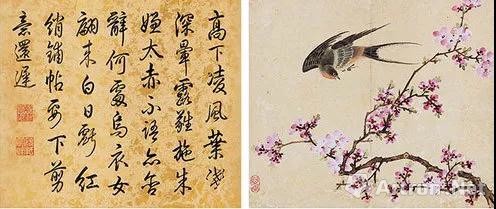 高下凌風葉淺
深暈露施朱
嫌太赤小語亦含
辭何處烏衣女
翩來白日紅
綃鋪帖妥下剪
意還遲
Artron.Net